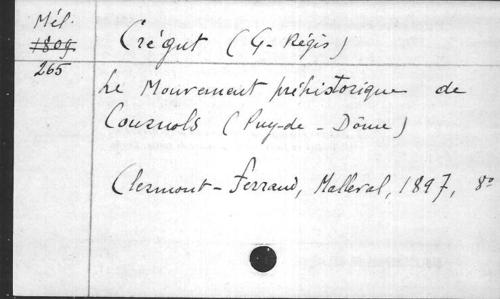 Mél.
1809
265
Crégut (G-Régis)
Le Monument préhistorique de
Cournols (Puy-de-Dôme)
Clermont-Ferrand, Malleval, 1897, 8°